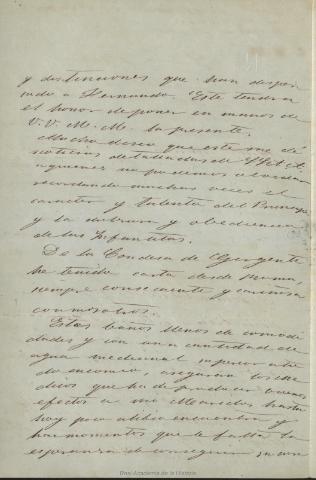 y distinciones que han dispen
sado a Fernando. Este tendra
el honor de poner en manos de
V.V. M.M. la presente.
Mucho deseo que este me dé
noticias detalladas de
a quienes no podemos olvidar
recordando muchas veces el
caracter y talento del Principe
y la dulzura y obediencia
de las Infantitas.
De la Condesa de Girgente
he tenido carta desde Viena,
siempre consecuente y cariñosa
con nosotros.
Estos baños llenos de comodi
dades y con una cantidad de
agua medicinal superior a todo
, aseguran los me
dicos que ha de producir buenos
efectos a mi Marido; hasta
hoy poco alibio encuentra y
hay momentos que le falta la
esperanza de conseguir
Real Academia de la Historia